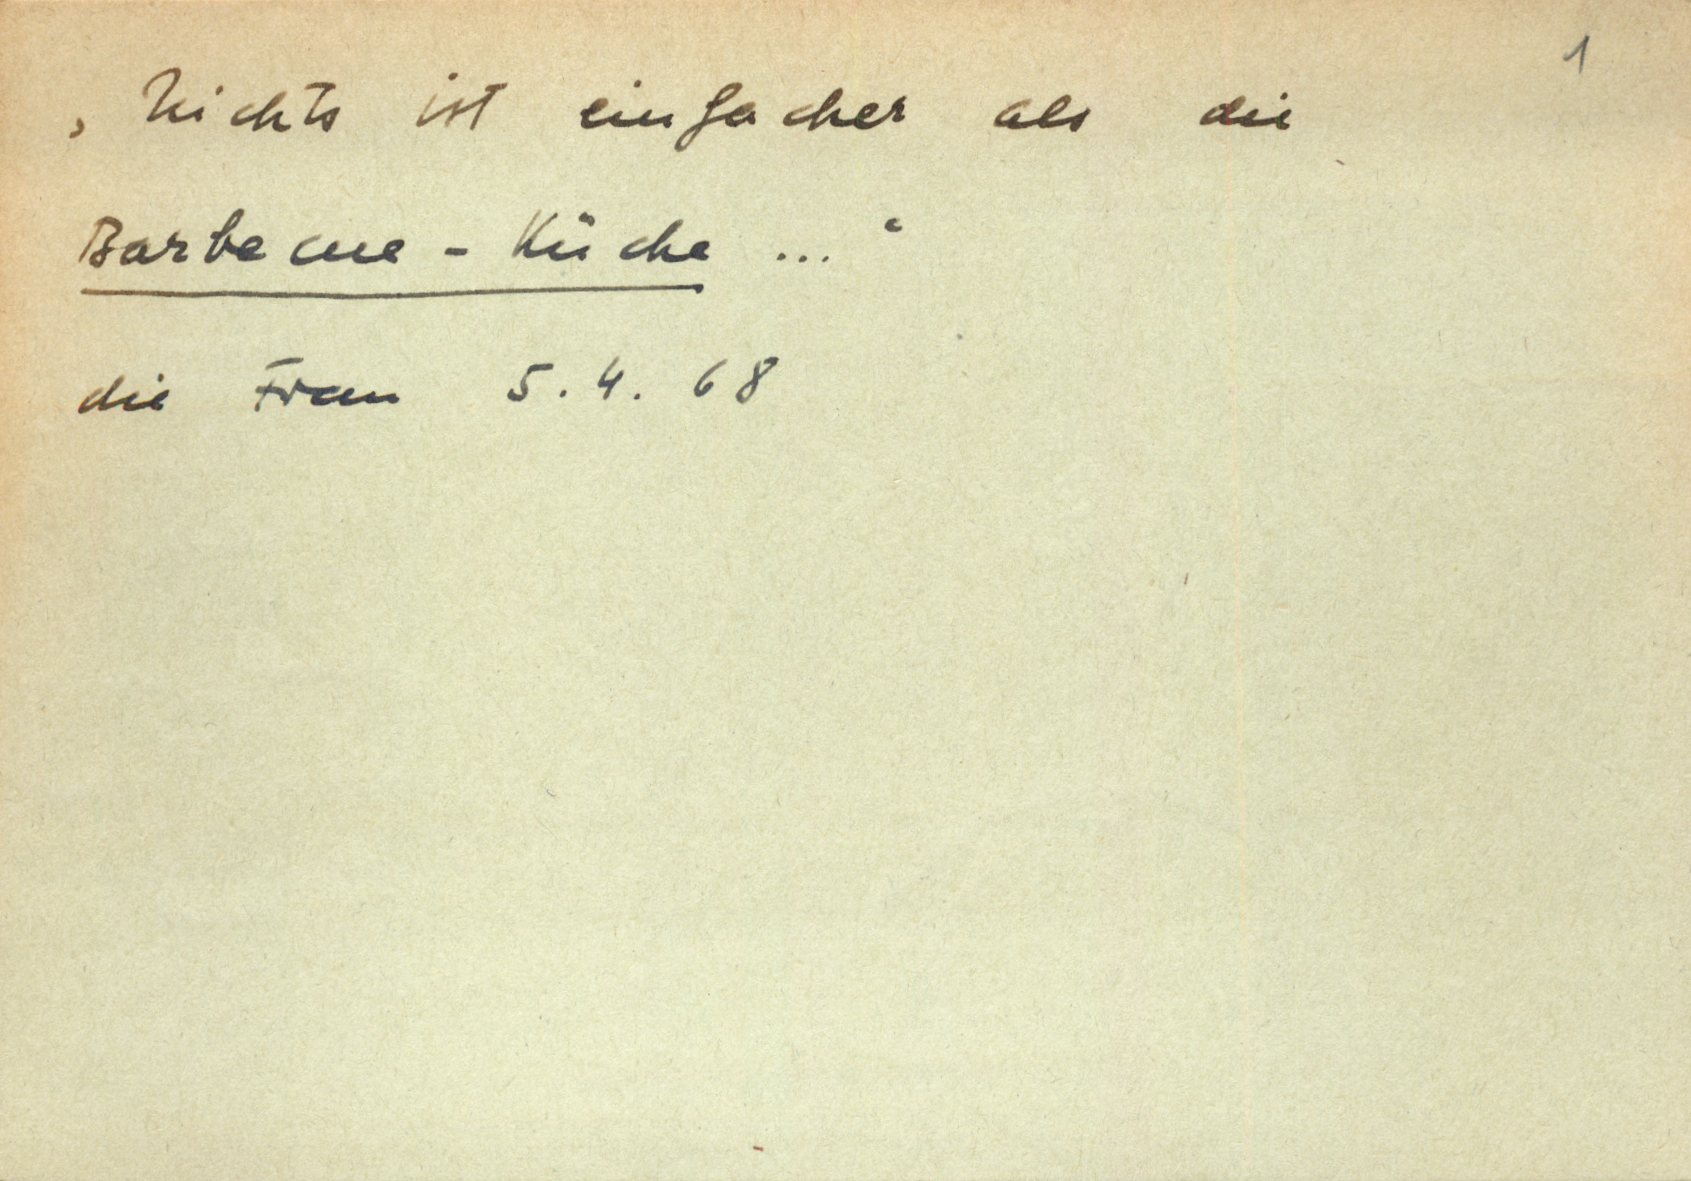 1
‚Nichts ist einfacher als die
Barbecue-Küche ...‘
die Frau 5.4.68